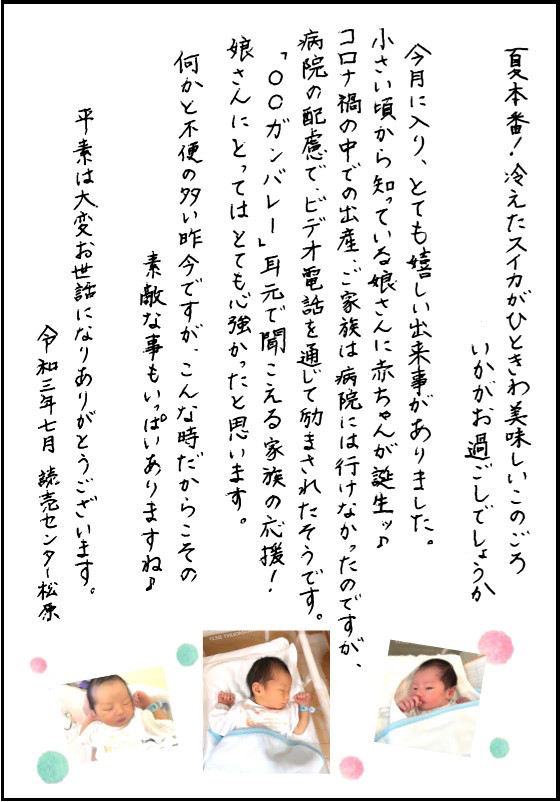 夏本番！冷えたスイカがひときわ美味しいこのごろ
いかがお過ごしでしょうか
今月に入り、とても嬉しい出来事がありました。
小さい頃から知っている娘さんに赤ちゃんが誕生ッ♪
コロナ禍の中での出産、ご家族は病院には行けなかったのですが、
病院の配慮で、ビデオ電話を通じて励まされたそうです。
「〇〇ガンバレー」耳元で聞こえる家族の応援！
娘さんにとってはとても心強かったと思います。
何かと不便の多い昨今ですが、こんな時だからこその
素敵な事もいっぱいありますね♪
平素は大変お世話になりありがとうございます。
令和三年七月 読売センター松原